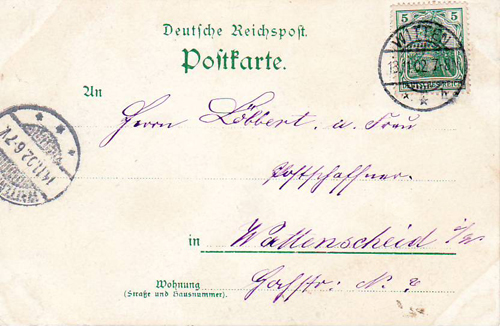 Deutsche Reichspost.
Postkarte.
5 5
WITTEN
13.11.02. 7-8
An
Herrn Löbbert u. Frau
Postschaffner
in Wattenscheid i/W.
Wohnung
(Straße und Hausnummer).
Hochstr. N.
14.11.02. 6-7V.